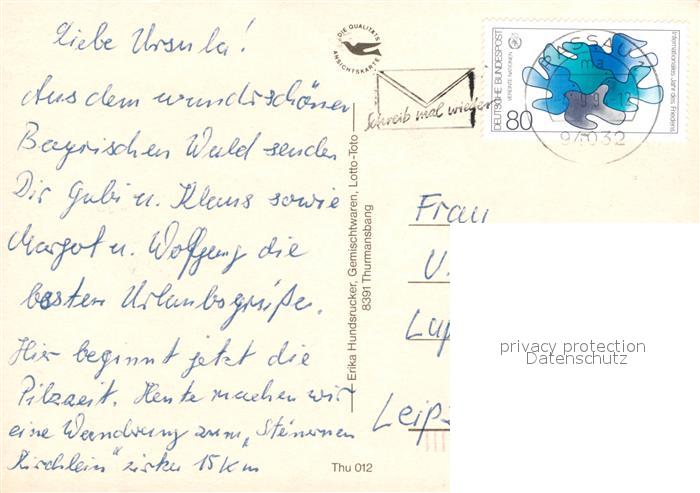 Liebe Ursula!
Aus dem wunderschönen
Bayrischen Wald senden
Dir Gabi u. Klaus sowie
Margot u. Wolfgang die
besten Urlaubsgrüße.
Hier beginnt jetzt die
Pilzzeit. Heute machen wir
eine Wandrung zum „Steinernen
Kirchlein" zirka 15 km
DIE QUALITÄTS
ANSICHTSKARTE
Schreib mal wieder
DEUTSCHE BUNDESPOST
VEREINTE NATIONEN
80
Internationales Jahr des Friedens
PASSAU
94032
Erika Hundsrucker, Gemischtwaren, Lotto-Toto
8391 Thurmansbang
Thu 012
Frau
U.
Leipz
privacy protection
Datenschutz